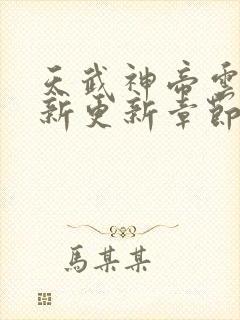 天武神帝雲
新更新章節
馬某某